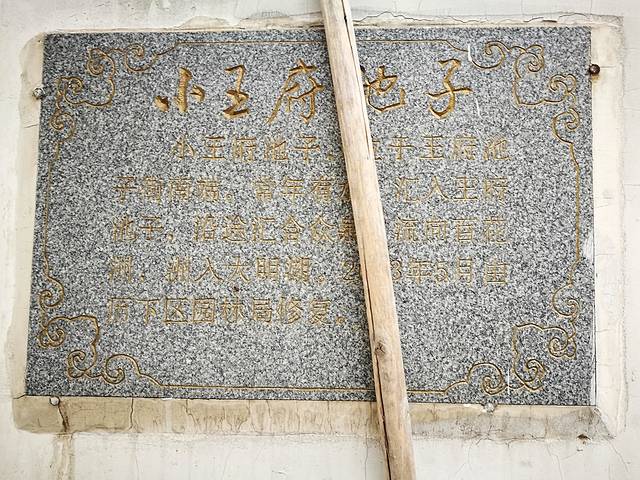 小王府池子
小王府池子，于王府池
子街南端，常年有汇入王府
池子，沿途汇合众流向百花
洲，入大明湖。23年5月由
历下区园林局修复。